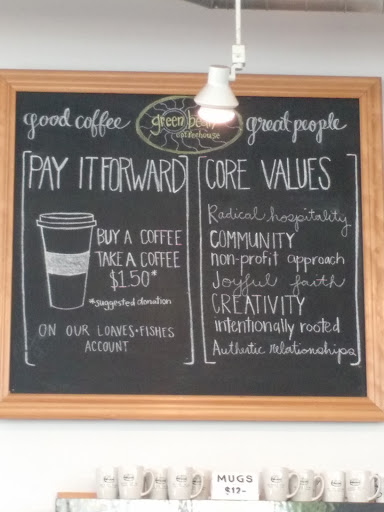 good coffee
green bean
coffeehouse
great people
PAY IT FORWARD
BUY A COFFEE
TAKE A COFFEE
$1.50*
*suggested donation
ON OUR LOAVES+FISHES
ACCOUNT
CORE VALUES
Radical hospitality
COMMUNITY
non-profit approach
Joyful faith
CREATIVITY
intentionally rooted
Authentic relationships
MUGS
$12-